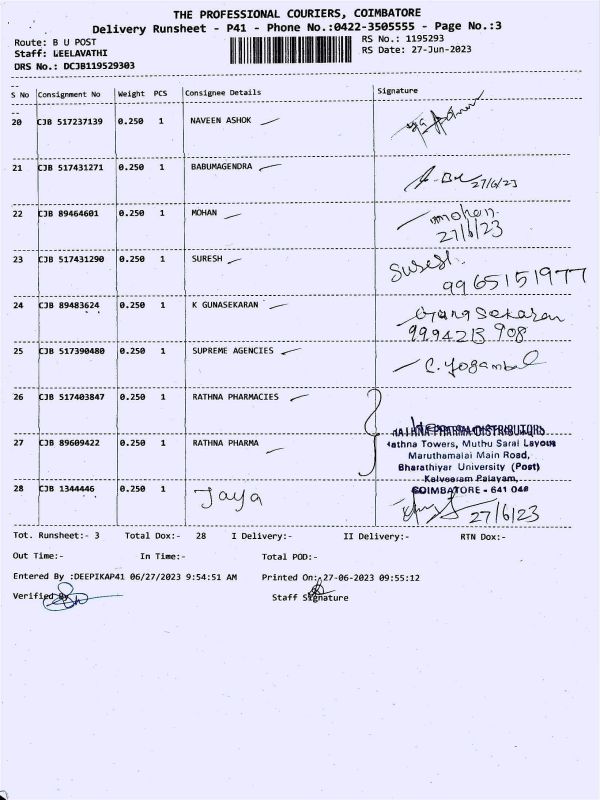 THE PROFESSIONAL COURIERS, COIMBATORE
Delivery Runsheet - P41 - Phone No.:0422-3505555 - Page No.:3
Route: B U POST RS No.: 1195293
Staff: LEELAVATHI RS Date: 27-Jun-2023
DRS No.: DCJB119529303
S No Consignment No Weight PCS Consignee Details Signature
20 CJB 517237139 0.250 1 NAVEEN ASHOK
21 CJB 517431271 0.250 1 BABUMAGENDRA 27/6/23
22 CJB 89464601 0.250 1 MOHAN mohan.
27/6/23
23 CJB 517431290 0.250 1 SURESH Suresh.
9965151977
24 CJB 89483624 0.250 1 K GUNASEKARAN Gunasekaran
9994213 908
25 CJB 517390480 0.250 1 SUPREME AGENCIES C. Yogambal
26 CJB 517403847 0.250 1 RATHNA PHARMACIES
RATHNA PHARMA DISTRIBUTORS
27 CJB 89609422 0.250 1 RATHNA PHARMA Rathna Towers, Muthu Sarai Layout
Maruthamalai Main Road,
Bharathiyar University (Post)
Kalveeram Palayam,
COIMBATORE - 641 046
28 CJB 1344446 0.250 1 Jaya 27/6/23
Tot. Runsheet:- 3 Total Dox:- 28 I Delivery:- II Delivery:- RTN Dox:-
Out Time:- In Time:- Total POD:-
Entered By :DEEPIKAP41 06/27/2023 9:54:51 AM Printed On: 27-06-2023 09:55:12
Verified By Staff Signature